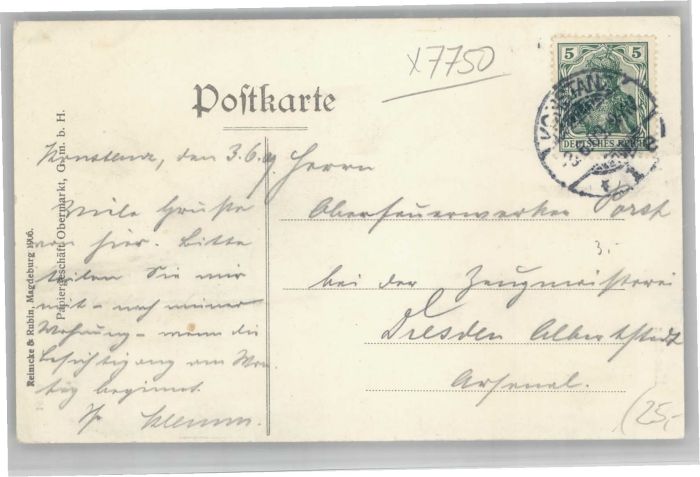 x7750
5 5
DEUTSCHES REICH
KONSTANZ
Postkarte
Konstanz, den 3.6.
Viele Grüße
von hier. Bitte
teilen Sie mir
mit - nach meiner
Wohnung - wenn die
Besichtigung am Mon
tag beginnt.
Klemm.
Herrn
Oberfeuerwerker Porst
3.-
bei der Zeugmeisterei
Dresden Albertstadt
Arsenal.
(25,-
Reinicke & Rubin, Magdeburg 1906.
Papiergeschäft Obermarkt, G. m. b. H.